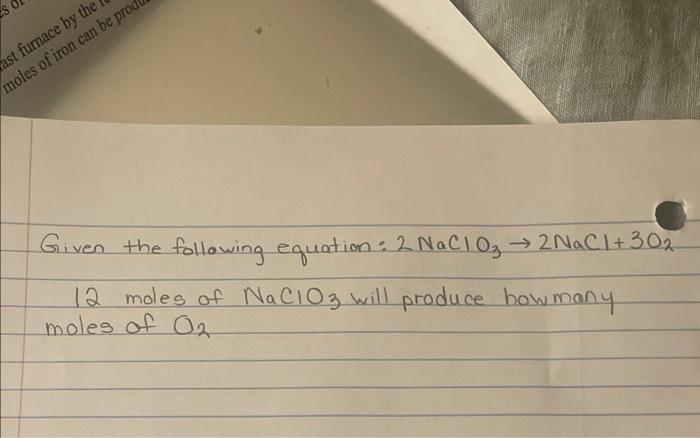 ast furnace by the
moles of iron can be produ
Given the following equation: 2 NaClO₃ → 2NaCl + 3O₂
12 moles of NaClO₃ will produce how many
moles of O₂